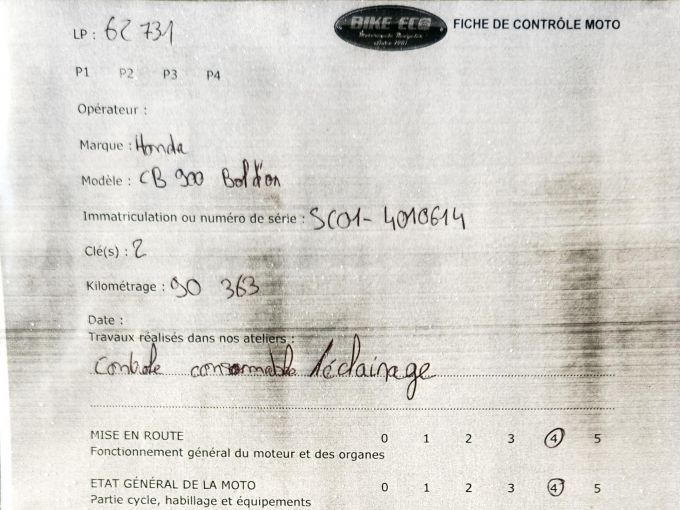 LP : 62 731
BIKE ECO
FICHE DE CONTRÔLE MOTO
P1 P2 P3 P4
Opérateur :
Marque : Honda
Modèle : CB 900 Bold'or
Immatriculation ou numéro de série : SC01-4010614
Clé(s) : 2
Kilométrage : 90 363
Date :
Travaux réalisés dans nos ateliers :
Contrôle consommable / éclairage
MISE EN ROUTE 0 1 2 3 4 5
Fonctionnement général du moteur et des organes
ETAT GÉNÉRAL DE LA MOTO 0 1 2 3 4 5
Partie cycle, habillage et équipements